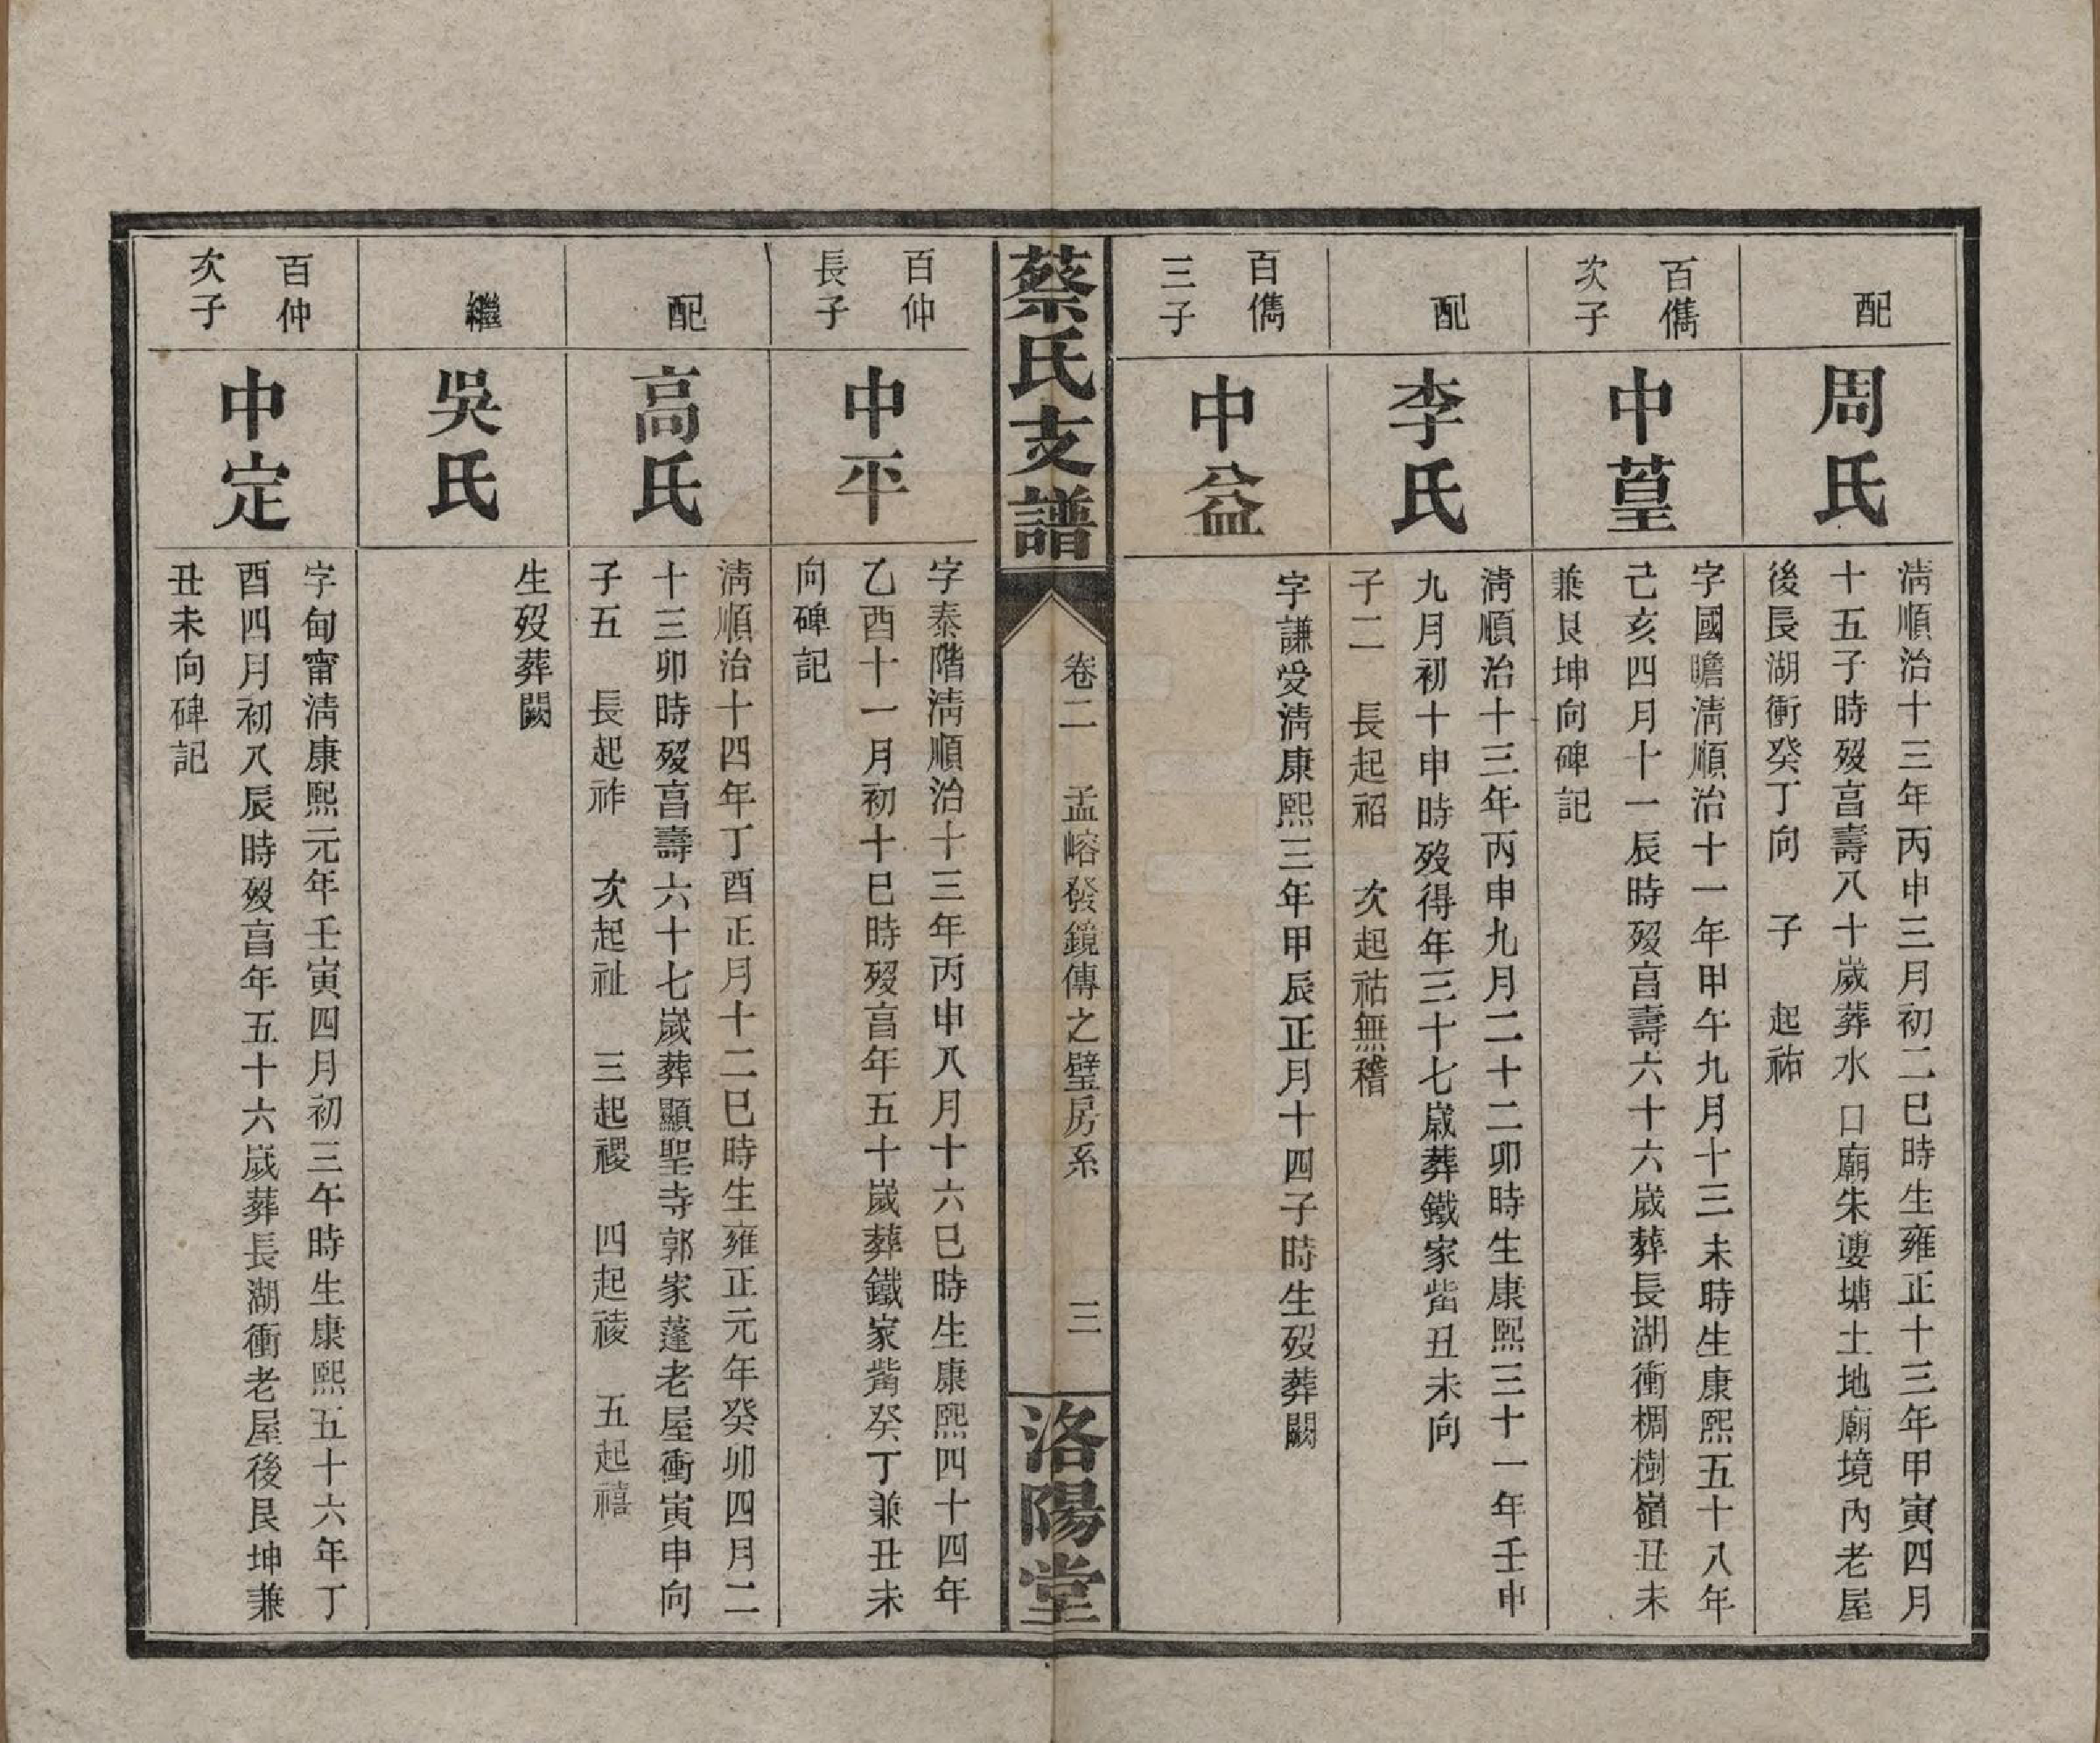 配
周氏
淸順治十三年丙申三月初二巳時生雍正十三年甲寅四月
十五子時歿亯壽八十歲葬水口廟朱婆塘土地廟境內老屋
後長湖衝癸丁向　子　起祐
百儁
次子
中葟
字國瞻淸順治十一年甲午九月十三未時生康熙五十八年
己亥四月十一辰時歿亯壽六十六歲葬長湖衝椆樹嶺丑未
兼艮坤向碑記
配
李氏
淸順治十三年丙申九月二十二卯時生康熙三十一年壬申
九月初十申時歿得年三十七歲葬鐵家嵴丑未向
子二　長起祒　次起祜無稽
百儁
三子
中益
字謙受淸康熙三年甲辰正月十四子時生歿葬闕
蔡氏支譜
卷二　孟嵱發鏡傳之璧房系
三
洛陽堂
百仲
長子
中平
字泰階淸順治十三年丙申八月十六巳時生康熙四十四年
乙酉十一月初十巳時歿亯年五十歲葬鐵家嵴癸丁兼丑未
向碑記
配
高氏
淸順治十四年丁酉正月十二巳時生雍正元年癸卯四月二
十三卯時歿亯壽六十七歲葬顯聖寺郭家蓬老屋衝寅申向
子五　長起祚　次起祉　三起禝　四起祾　五起禧
繼
吳氏
生歿葬闕
百仲
次子
中定
字甸甯淸康熙元年壬寅四月初三午時生康熙五十六年丁
酉四月初八辰時歿亯年五十六歲葬長湖衝老屋後艮坤兼
丑未向碑記